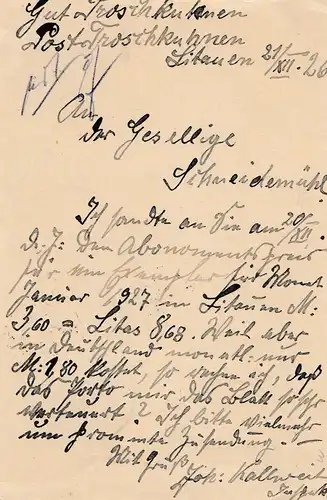 Gut-Troschkuhnen
Post-Troschkuhnen
Litauen 21/XII. 26
An
der Gesellige
Schneidemühl
Ich sandte an Sie am 20/XII.
d. J. den Abonomentspreis
für ein Exemplar für Monat
Januar 1927 in Litauen M:
3,60 = Litas 8,68. Weil aber
in Deutschland monatl. nur
M: 1,80 kostet, so sehen ich, daß
das Porto mir das Blatt so sehr
verteuert? Ich bitte vielmehr
um prommte Zusendung. –
Mit Gruß
Joh: Kallweit